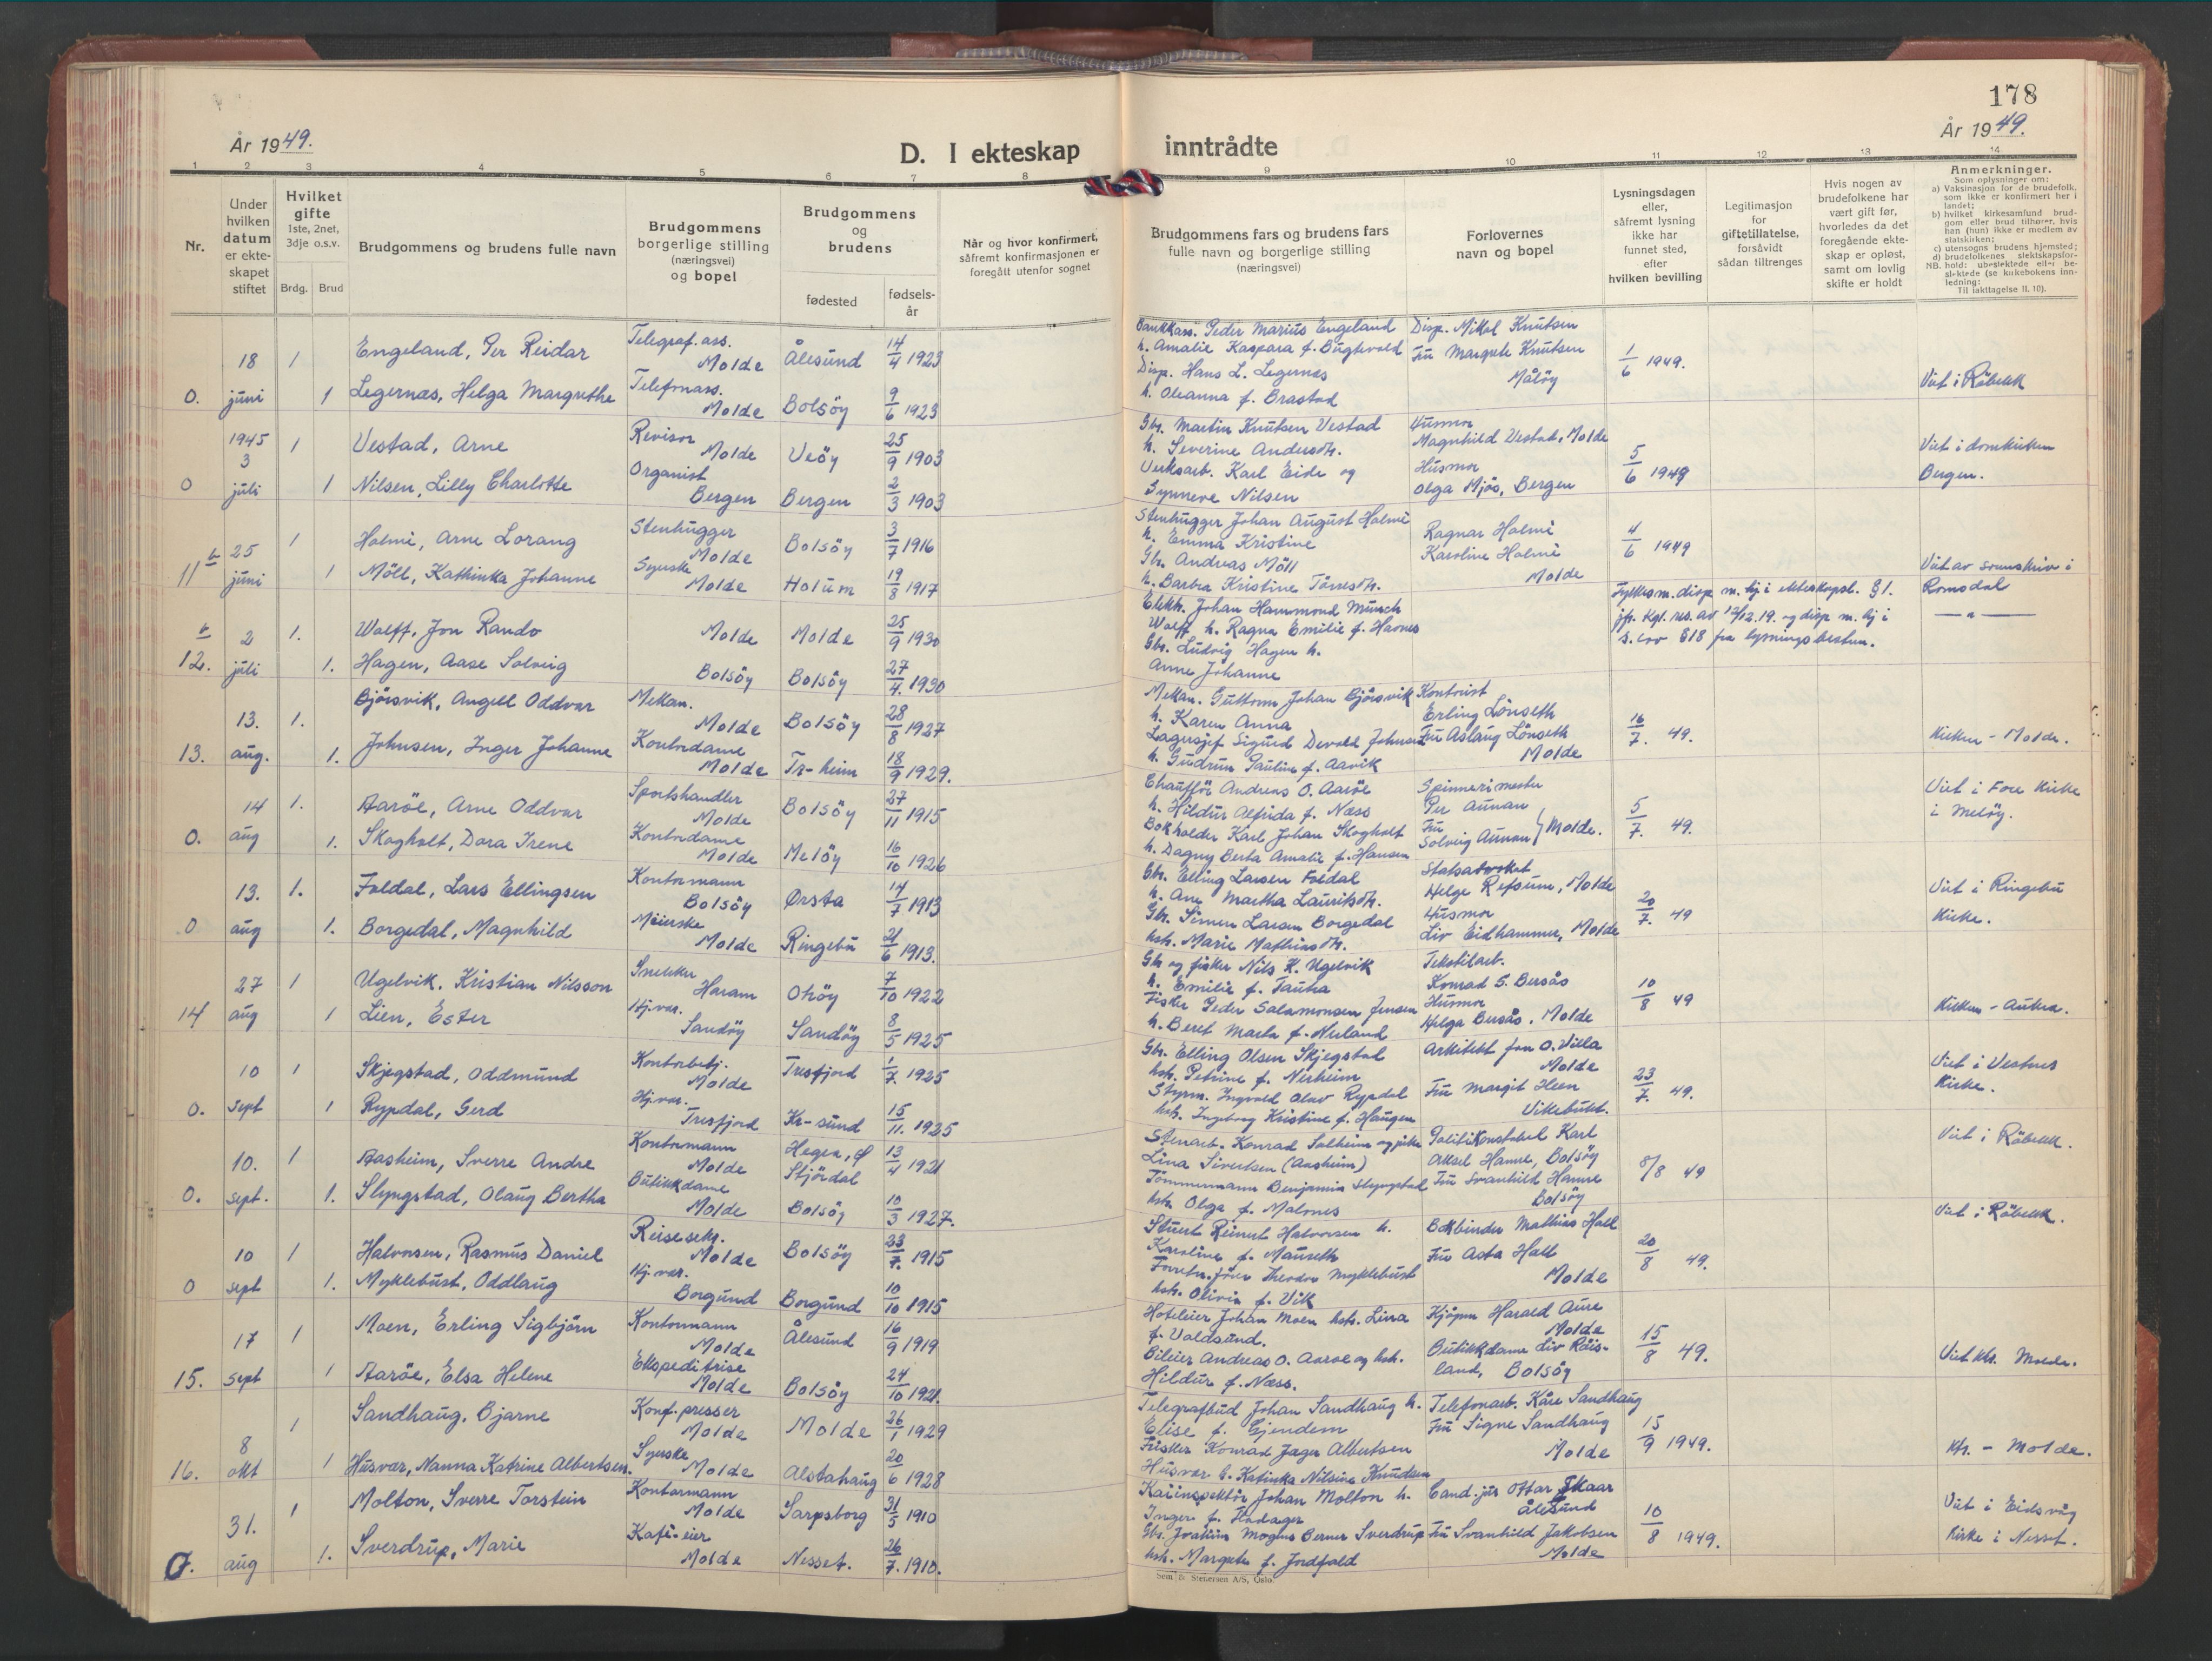 178
År 1949.
D. I ekteskap inntrådte
År 1949.
1 2 3 4 5 6 7 8 9 10 11 12 13 14
Nr.
Under hvilken datum er ekteskapet stiftet
Hvilket gifte 1ste, 2net, 3dje o.s.v.
Brdg. Brud
Brudgommens og brudens fulle navn
Brudgommens borgerlige stilling (næringsvei) og bopel
Brudgommens og brudens
fødested
fødsels-år
Når og hvor konfirmert, såfremt konfirmasjonen er foregått utenfor sognet
Brudgommens fars og brudens fars fulle navn og borgerlige stilling (næringsvei)
Forlovernes navn og bopel
Lysningsdagen eller, såfremt lysning ikke har funnet sted, efter hvilken bevilling
Legitimasjon for giftetillatelse, forsåvidt sådan tiltrenges
Hvis nogen av brudefolkene har vært gift før, hvorledes da det foregående ekteskap er opløst, samt om lovlig skifte er holdt
Anmerkninger.
Som oplysninger om:
a) Vaksinasjon for de brudefolk, som ikke er konfirmert her i landet;
b) hvilket kirkesamfund brudgom eller brud tilhører, hvis han (hun) ikke er medlem av statskirken;
c) utensogns brudens hjemsted;
d) brudefolkenes slektskapsforhold: ubeslektede eller beslektede (se kirkebokens innledning:
NB.
Til iakttagelse II. 10).
0. 18 juni 1 Engeland, Per Reidar Telegraf.ass. Molde Ålesund 14/4 1923
1 Legernæs, Helga Margrethe Telefonass. Molde Bolsöy 9/6 1923
Bankkass. Peder Marius Engeland
h. Amalie Kaspara f. Bugtevold
Disp. Hans L. Legernæs
h. Oleanna f. Brastad
Disp. Mikal Knutsen
Fru Margrete Knutsen
Målöy
1/6 1949.
Viet i Röbekk
0 1945 3 juli 1 Vestad, Arne Revisor Molde Veöy 25/9 1903
1 Nilsen, Lilly Charlotte Organist Bergen Bergen 2/3 1903
Gbr. Martin Knutsen Vestad
h. Severine Andersdtr.
Verksarb. Karl Eide og
Synneve Nilsen
Husmor
Magnhild Vestad, Molde
Husmor
Olga Mjös, Bergen
5/6 1949
Viet i domkirken
Bergen.
11 b 25 juni 1 Holmi, Arne Lorang Stenhugger Molde Bolsöy 3/7 1916
1 Möll, Kathinka Johanne Syerske Molde Holum 19/8 1917
Stenhugger Johan August Holmi
h. Emma Kristine
Gbr. Andreas Möll
h. Barbra Kristine Törresdtr.
Ragnar Holmi
Karoline Holmi
Molde
4/6 1949
Viet av sorenskriv i
Romsdal
12. b 2 juli 1. Wolff, Jon Rando Molde Molde 25/9 1930
1. Hagen, Aase Solveig Bolsöy Bolsöy 27/4. 1930
Elektr. Johan Hammond Munch
Wolff h. Ragna Emilie f. Havnes
Gbr. Ludvig Hagen h.
Anne Johanne
Fylkesm. disp m. hj i ekteskapsl. § 1.
jfr. Kgl. res. av 12/12.19. og disp m. hj i
s. lov §18 fra lysningsbestem.
— " —
13. 13. aug. 1. Bjöisvik, Angell Oddvar Mekan. Molde Bolsöy 28/8 1927
1. Johnsen, Inger Johanne Kontordame Molde Tr-heim 18/9 1929.
Mekan. Guttorm Johan Bjöisvik
h. Karen Anna
Lagersjef Sigurd Devold Johnsen
h. Gudrun Pauline f. Aarvik
Kontorist
Erling Lönseth
Fru Aslaug Lönseth
Molde
16/7. 49.
Kirken - Molde.
0. 14 aug 1. Aaröe, Arne Oddvar Sportshandler Molde Bolsöy 27/11 1915
1. Skogholt, Dora Irene Kontordame Molde Melöy 16/10 1926
Chaufför Andreas O. Aaröe
h. Hildur Alfrida f. Næss
Bokholder Karl Johan Skogholt
h. Dagny Berta Amalie f. Hansen
Spinnerimester
Per Aunan
Fru
Solveig Aunan } Molde.
5/7. 49.
Viet i Fore Kirke
i Melöy.
0 13. aug 1. Foldal, Lars Ellingsen Kontormann Bolsöy Ørsta 14/7 1913
1. Borgedal, Magnhild Meierske Molde Ringebu 21/6 1913.
Gbr. Elling Larsen Foldal
h. Ane Martha Lauritsdtr.
Gbr. Simen Larsen Borgedal
hstr. Marie Mathiasdtr.
Statsadvokat
Helge Refsum, Molde
Husmor
Liv Eidhammer, Molde
20/7. 49
Viet i Ringebu
Kirke.
14 27 aug 1 Ugelvik, Kristian Nilsson Snekker Haram Ohöy 7/10 1922
1 Lien, Ester Hj.vær. Sandöy Sandöy 8/5 1925
Gbr og fisker Nils K. Ugelvik
h. Emilie f. Tautra
Fisker Peder Salamonsen Jensen
h. Beret Marta f. Nerland
Tekstilarb.
Konrad S. Bersås
Husmor
Helga Bersås, Molde
10/8 49
Kirken - Aukra.
0. 10 sept 1 Skjegstad, Oddmund Kontorbetj. Molde Tresfjord 1/7. 1925
1 Rypdal, Gerd Hj.vær. Tresfjord Kr-sund 15/11. 1925
Gbr. Elling Olsen Skjegstad
hstr. Petrine f. Nerheim
Styrm. Ingvald Olav Rypdal
hstr. Ingeborg Kristine f. Haugen
Arkitekt Jon O. Villa
Molde
Fru Margit Heen
Vikebukt.
23/7. 49.
Viet i Vestnes
Kirke.
0. 10. sept. 1 Aasheim, Sverre Andre Kontormann Molde Hegra, Stjördal 13/4 1921
1. Slyngstad, Olaug Bertha Butikkdame Molde Bolsöy 10/3 1927.
Stenarb. Konrad Solheim og pike
Lina Sivertsen (Aasheim)
Tömmermann Benjamin Slyngstad
hstr. Olga f. Malones
Politikonstabel Karl
Aksel Hamre, Bolsöy
Fru Svanhild Hamre
Bolsöy
8/8 49
Viet i Röbekk.
0 10 sept 1 Halvorsen, Rasmus Daniel Reisesekr. Molde Bolsöy 23/7. 1915
1. Myklebust, Oddlaug Hj.vær. Borgund Borgund 10/10 1915
Stuert Reinert Halvorsen h.
Karoline f. Mauseth
Forretn.förer Theodor Myklebust
hstr. Olivia f. Vik
Bokbinder Mathias Hall
Fru Asta Hall
Molde
20/8 49.
Viet i Röbekk.
15. 17 sept 1 Moen, Erling Sigbjörn Kontormann Molde Ålesund 16/9 1919
1 Aaröe, Elsa Helene Ekspeditrise Molde Bolsöy 24/10 1921.
Hoteleier Johan Moen hstr. Lina
f. Valdsund.
Bileier Andreas O. Aaröe og hstr.
Hildur f. Næss.
Kjöpm Harald Aure
Molde
Butikkdame Liv Röis-
land, Bolsöy
15/8 49.
Viet kk. Molde.
16. 8 okt 1 Sandhaug, Bjarne Konf.presser Molde Molde 26/1 1929
1 Husvær, Nanna Katrine Albertsen. Syerske Molde Alstahaug 20/6 1928
Telegrafbud Johan Sandhaug h.
Elise f. Gjendem
Fisker Konrad Jæger Albertsen
Husvær h. Katinka Nilsine Knudsen
Telefonarb. Kåre Sandhaug
Fru Signe Sandhaug
Molde
15/9 1949.
Kk. - Molde.
0. 31. aug 1 Molton, Sverre Torstein Kontormann Molde Sarpsborg 31/5 1910
1. Sverdrup, Marie Kafé-eier Molde Nesset. 26/7. 1910.
Kaiinspektör Johan Molton h.
Inger f. Hadager
Gbr. Joakim Mogens Berner Sverdrup
hstr. Margrete f. Jordfald
Cand. jur Ottar Skaar
Ålesund
Fru Svanhild Jakobsen
Molde
10/8 1949.
Viet i Eidsvåg
Kirke i Nesset.
Sem & Stenersen A/S, Oslo.